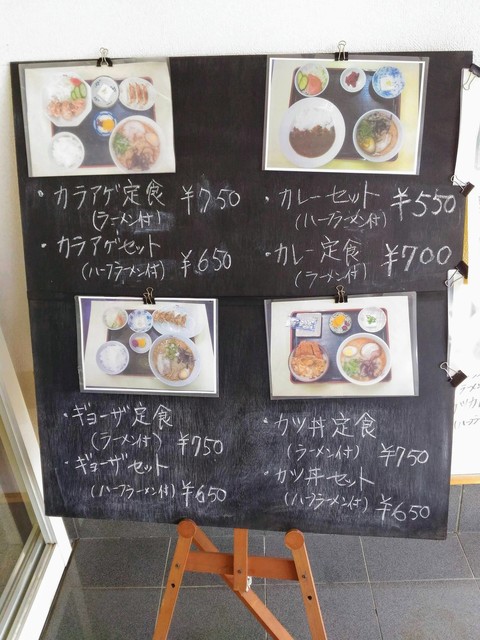 ・カラアゲ定食 ¥750
(ラーメン付)
・カラアゲセット
(ハーフラーメン付) ¥650
・カレーセット ¥550
(ハーフラーメン付)
・カレー定食 ¥700
(ラーメン付)
・ギョーザ定食
(ラーメン付) ¥750
・ギョーザセット
(ハーフラーメン付) ¥650
・カツ丼定食
(ラーメン付) ¥750
・カツ丼セット
(ハーフラーメン付) ¥650